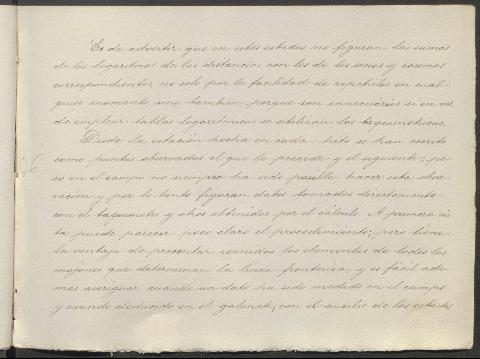 Es de advertir que en estos estados no figuran las sumas
de los logaritmos de las distancias con los de los senos y cosenos
correspondientes no solo por la facilidad de repetirlos en cual-
quier momento sino tambien porque son innecesarios si en vez
de emplear tablas logarítmicas se utilizan las taquimetricas.
Desde la estación hecha en cada hito se han escrito
como puntos observados el que le precede y el siguiente, pe-
ro en el campo no siempre ha sido posible hacer esta obser-
vacion y por lo tanto figuran datos tomados directamente
con el taquimetro y otros obtenidos por el cálculo. A primera vis-
ta puede parecer poco claro el procedimiento; pero tiene
la ventaja de presentar reunidos los elementos de todos los
mojones que determinan la linea fronteriza, y es fácil ade-
mas averiguar cuando un dato ha sido medido en el campo
y cuando deducido en el gabinete, con el auxilio de los estados